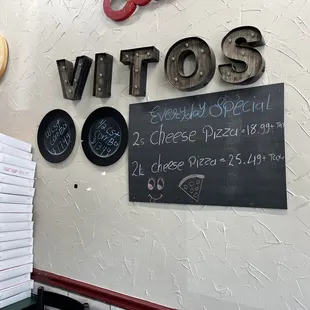 VITOS
Everyday Special
2s Cheese Pizza = 18.99 + Tax
2L cheese Pizza = 25.49 + Tax